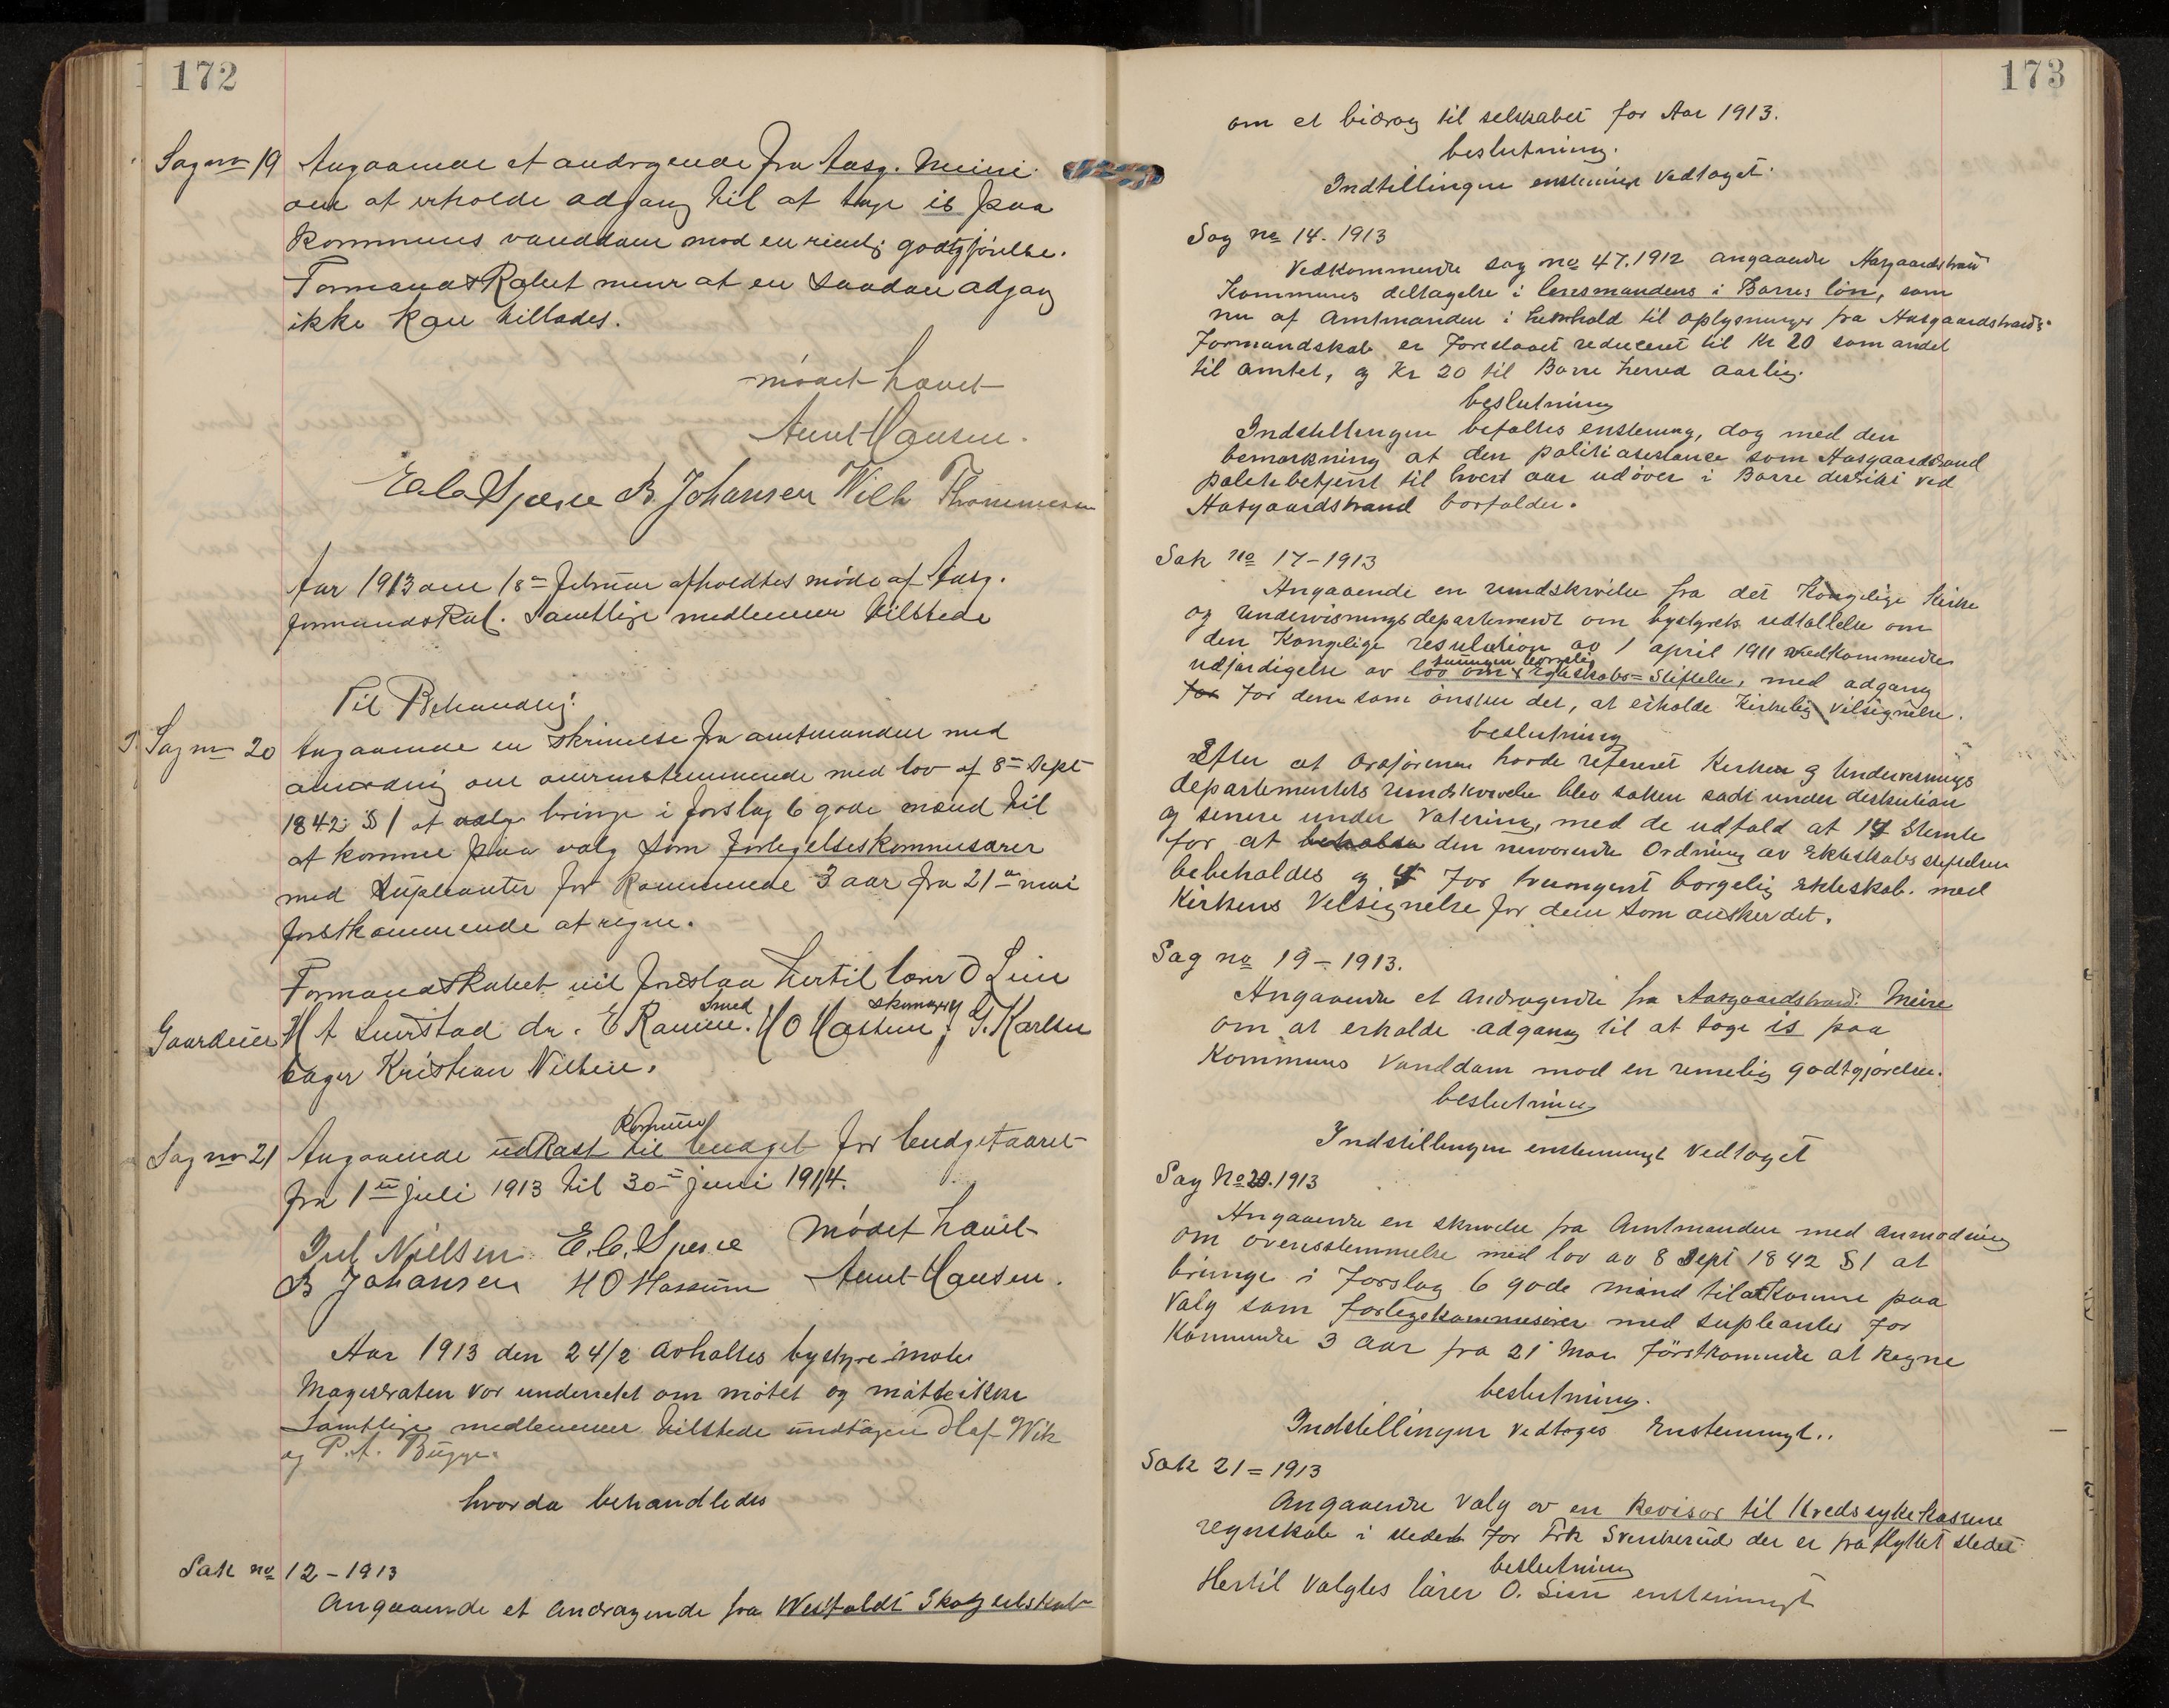 172
Sag no 19 Angaaende et andragende fra Aasg. Meieri
om at erholde adgang til at tage is paa
kommunens vanddam mod en rimelig godtgjörelse.
Formandskabet mener at en saadan adgang
ikke kan tillades.
mödet hævet
Anut Hansen.
E. C. Spesne B. Johansen Wilh Thommesen
Aar 1913 den 18de februar afholdtes möde af Aasg.
formandskab. Samtlige medlemmer tilstede
Til Behandling:
Sag no 20 Angaaende en skrivelse fra amtmanden med
anmodning om overensstemmende med lov af 8de Sept
1842 § 1 at valg bringe i forslag 6 gode mænd til
at komme paa valg som forlegelseskommisærer
med supleanter for kommende 3 aar fra 21de mai
förstkommende at regne.
Formandskabet vil foreslaa hertil lærer O Lien
Gaardeier H A Leerstad dr. E Ramm. smed H O Hassum, skomager G. Karlsen
bager Kristian Nilsen.
Sag no 21 Angaaende udkast til Kommune budget for budgetaaret
fra 1te juli 1913 til 30te juni 1914.
Mödet hævet
Jul Nielsen E. C. Spesne
B Johansen H O Hassum Anut Hansen.
Aar 1913 den 24/2 avholtes bystyre möte
Magistraten var underrettet om mötet og mötte ikke
Samtlige medlemmer tilstede undtagen Olaf Wik
og P. A. Bugge.
hvor da behandledes
Sak no 12 – 1913
Angaaende et andragende fra Vestfoldt Skogselskab
173
om et bidrag til selskabet for Aar 1913.
beslutning.
Indstillingen enstemmigt vedtaget.
Sag no 14. 1913
Vedkommende sag no 47. 1912 angaaende Aasgaardstrand
Kommunes deltagelse i lensmandens i Borres lön, som
nu af Amtmanden i henhold til oplysninger fra Aasgaardstrands
Formandskab er foreslaaet reduceret til Kr 20 som andel
til amtet, og Kr 20 til Borre herred aarlig.
beslutning
Indstillingen befaltes enstemig, dog med den
bemærkning at den politiasistance som Aasgaardstrand
politibetjent til hvert aar udöver i Borre distrikt ved
Aasgaardstrand borfalder.
Sak no 17 – 1913
Angaaende en rundskrivelse fra det Kongelige Kirke
og Undervisningsdepartement om bystyrets udtallelse om
den Kongelige resulution av 1 april 1911 vedkommende
udfærdigelse av lov om tvungen borgerlig Egteskabs=Stiftelse, med adgang
for for dem som önsker det, at erholde Kirkelig Velsignelse.
beslutning
Efter at Ordföreren havde refereret Kirken og Undervisnings
departementets rundskrivelse blev saken sadt under diskution
og senere under Votering, med de udfald at 17 Stemte
for at beholde den nuværende Ordning av Ekteskabs stiftelsen
bebeholdes og 4 for tvungent borgelig Ekteskab. med
Kirkens Velsignelse for dem som önsker det.
Sag no 19 – 1913.
Angaaende et andragende fra Aasgaardstrand Meire
om at erholde adgang til at tage is paa
Kommunes Vanddam mod en rimelig godtgjörelse.
beslutning
Indstillingen enstemmigt vedtaget
Sag No 20. 1913
Angaaende en skrivelse fra Amtmanden med anmodning
om overensstemmelse med lov av 8 Sept 1842 § 1 at
bringe i Forslag 6 gode mænd til at komme paa
Valg som forlegskommisærer med supleanter for
Kommende 3 Aar fra 21 Mai Förstkommende at Regne
beslutning.
Indstillingen vedtoges Enstemmigt..
Sak 21 = 1913
Angaaende valg av en Revisor til Kredssykekassens
regnskab i stedet for Frk Svenkerud der er fraflyttet stedet
beslutning
Hertil valgtes lärer O. Lien enstemmigt